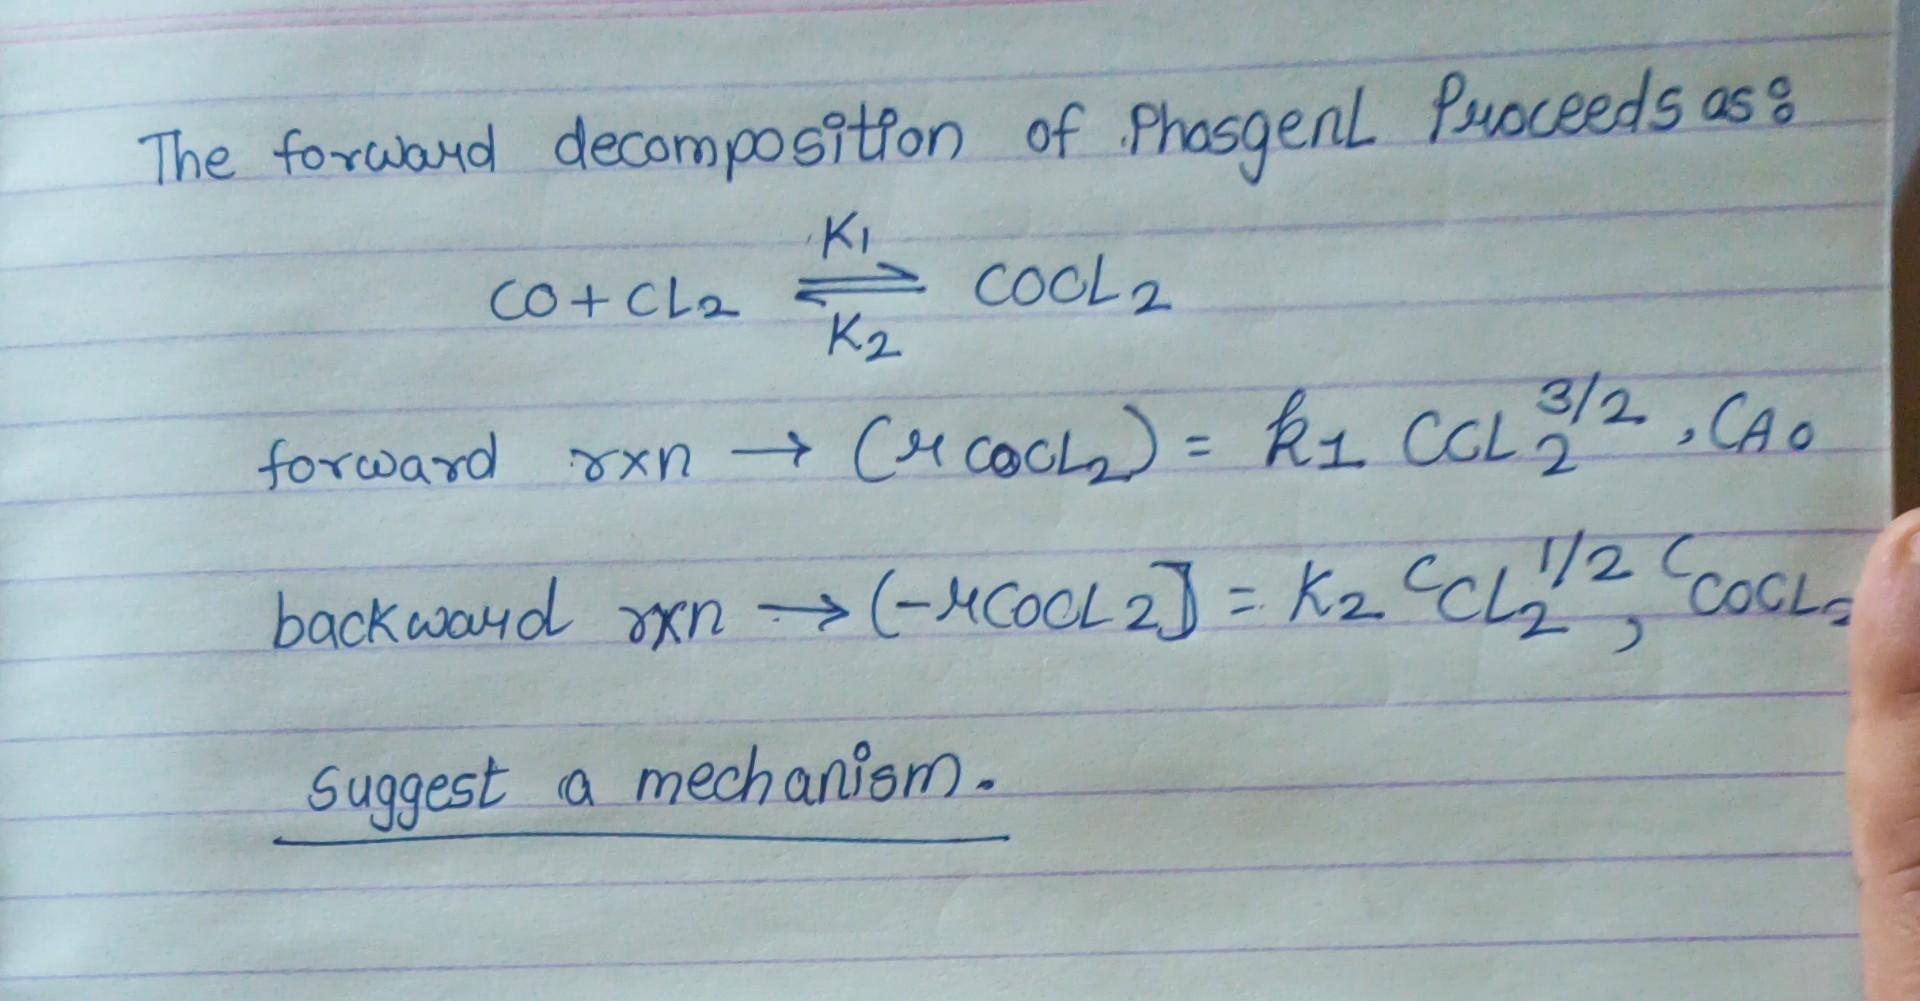 The forward decomposition of Phosgene Proceeds as:
K1
CO + CL2 ⇌ COCL2
K2
forward rxn → (rCOCL2) = k1 CCL2^3/2 , CAo
backward rxn → (-rCOCL2] = K2 CCL2^1/2 , CCOCL2
suggest a mechanism.